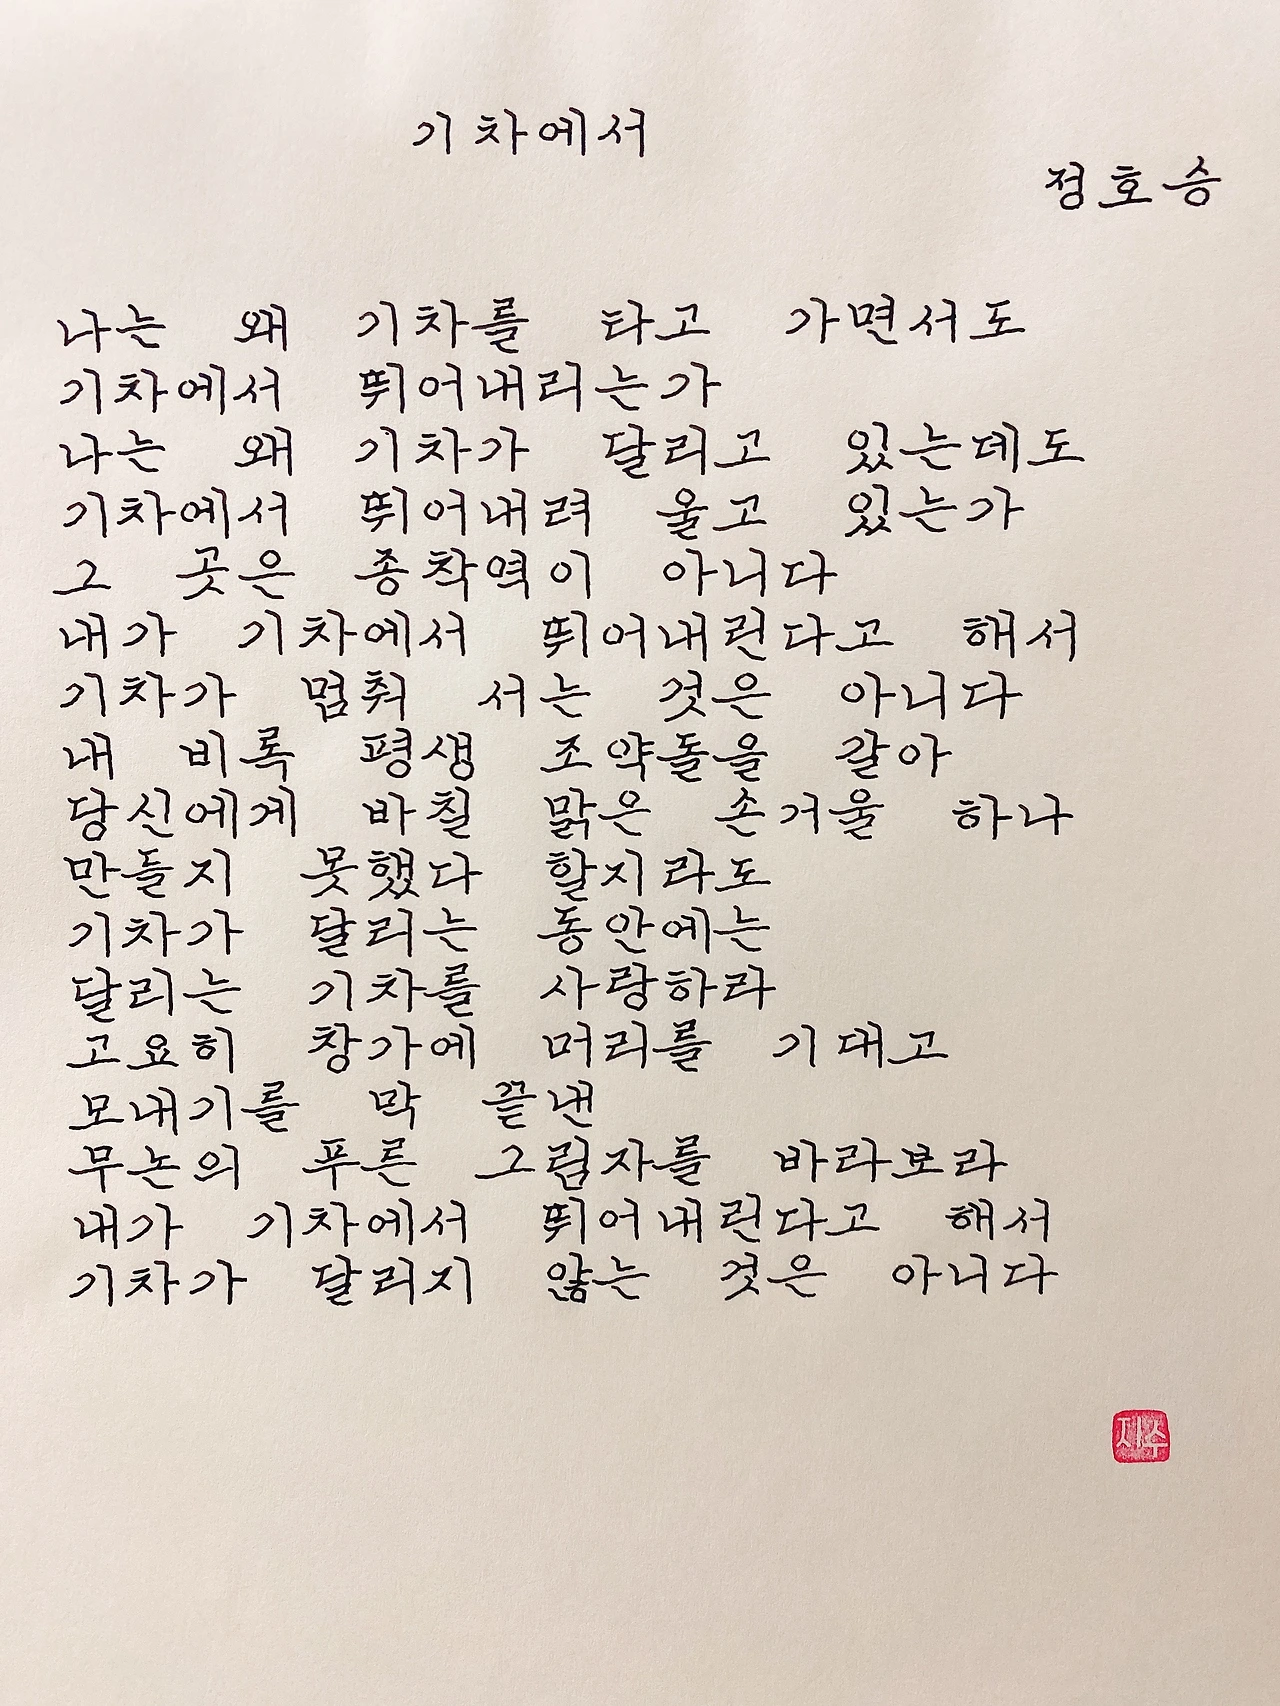 기차에서
정호승
나는 왜 기차를 타고 가면서도
기차에서 뛰어내리는가
나는 왜 기차가 달리고 있는데도
기차에서 뛰어내려 울고 있는가
그 곳은 종착역이 아니다
내가 기차에서 뛰어내린다고 해서
기차가 멈춰 서는 것은 아니다
내 비록 평생 조약돌을 갈아
당신에게 바칠 맑은 손거울 하나
만들지 못했다 할지라도
기차가 달리는 동안에는
달리는 기차를 사랑하라
고요히 창가에 머리를 기대고
모내기를 막 끝낸
무논의 푸른 그림자를 바라보라
내가 기차에서 뛰어내린다고 해서
기차가 달리지 않는 것은 아니다
지수